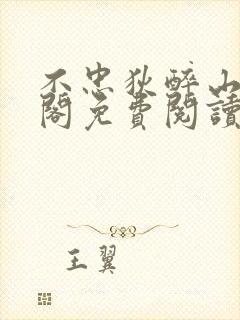 不忠狄醉山
閣免費閱讀
王翼